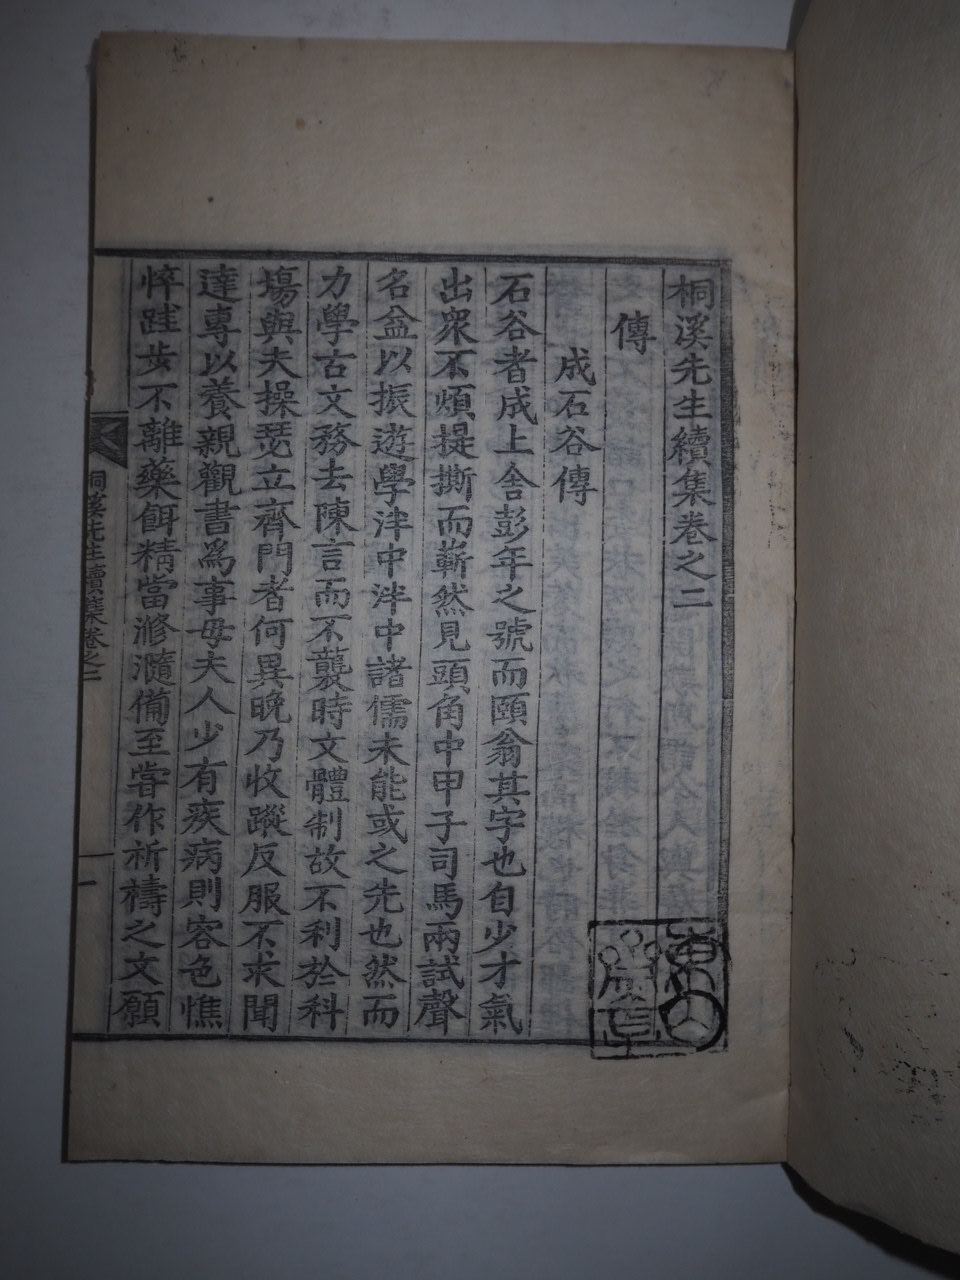 桐溪先生續集卷之二
傳
成石谷傳
石谷者成上舍彭年之號而頤翁其字也自少才氣
出衆不煩提撕而嶄然見頭角中甲子司馬兩試聲
名益以振遊學泮中泮中諸儒未能或之先也然而
力學古文務去陳言而不襲時文體制故不利於科
場與夫操瑟立齊門者何異晩乃收蹤反服不求聞
達專以養親觀書爲事母夫人少有疾病則容色憔
悴跬步不離藥餌精當滫瀡備至嘗作祈禱之文願
桐溪先生續集卷之二
一